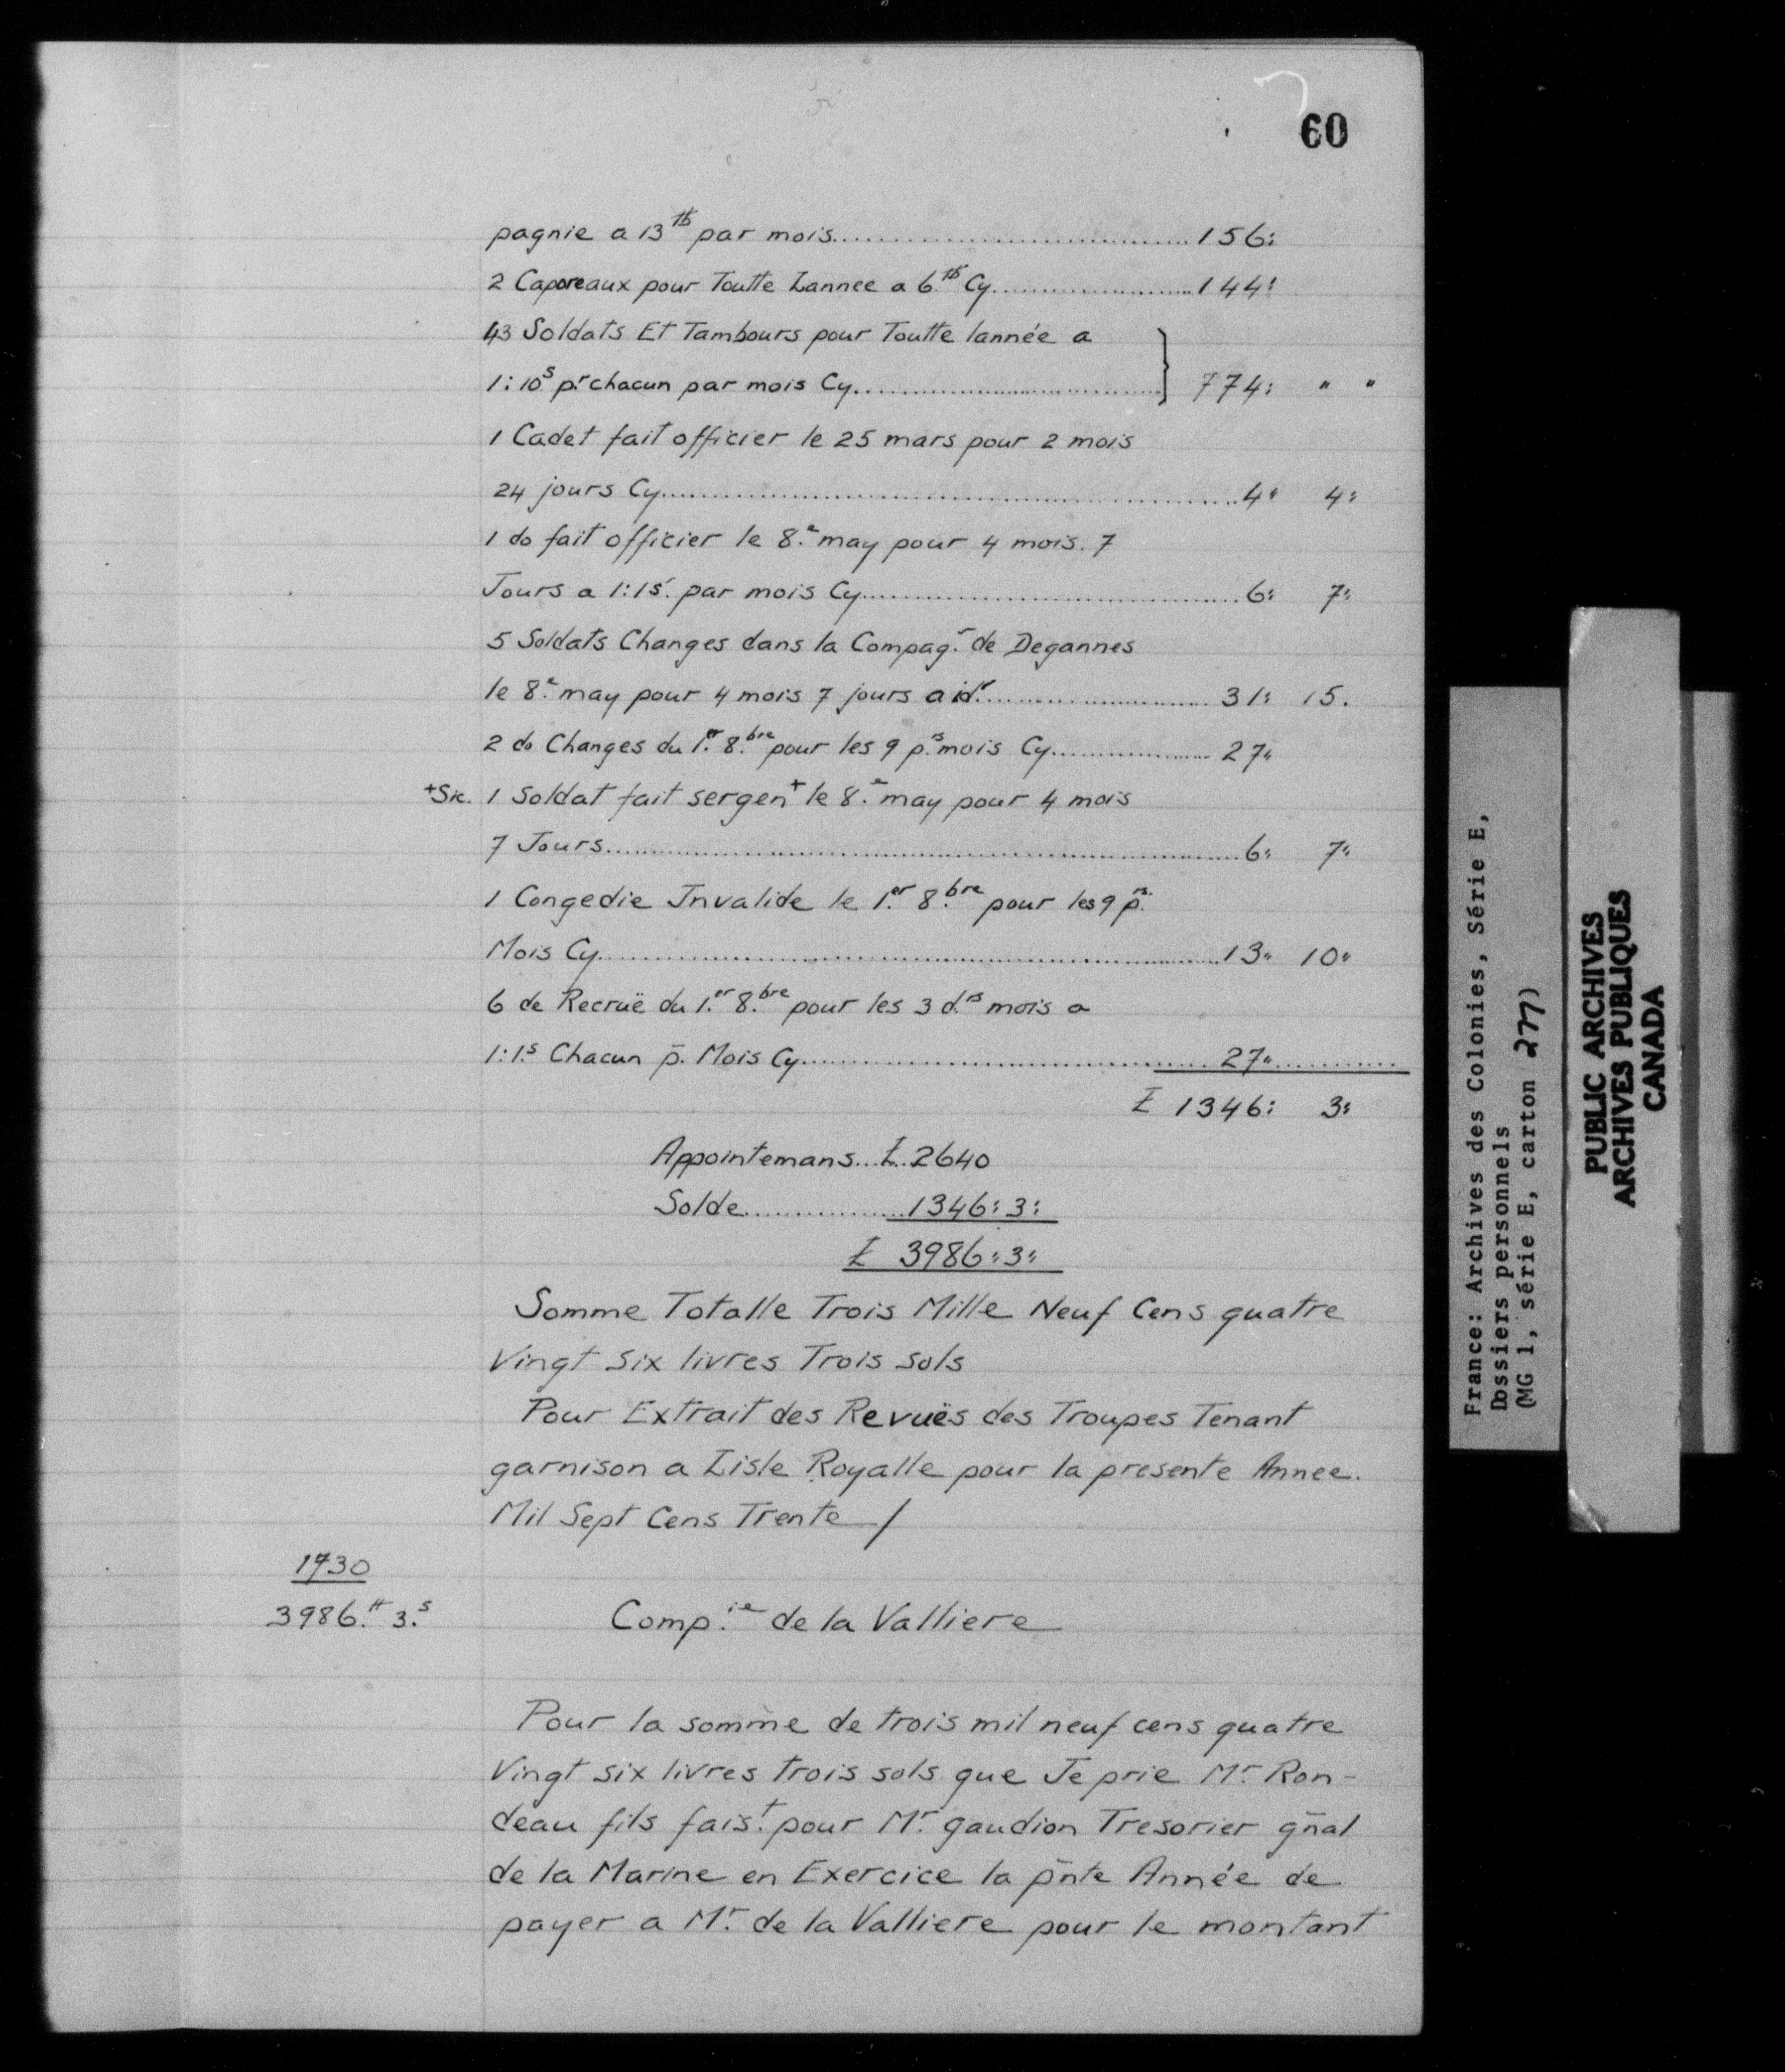 60
pagnie a 13 ₶ par mois.......... 156:
2 Caporeaux pour Toutte Lannee a 6.₶ Cy.......... 144:
43 Soldats Et Tambours pour Toutte lannée a
1:10s pr chacun par mois Cy.......... } 774: " "
1 Cadet fait officier le 25 mars pour 2 mois
24 jours Cy.......... 4: 4:
1 do fait officier le 8.e may pour 4 mois. 7
Jours a 1:1s. par mois Cy.......... 6: 7:
5 Soldats Changes dans la Compag.e de Degannes
le 8.e may pour 4 mois 7 jours a id.......... 31: 15.
2 do Changes du 1.er 8.bre pour les 9 p.s mois Cy.......... 27"
+Sic. 1 Soldat fait sergen+ le 8.e may pour 4 mois
7 Jours.......... 6: 7:
1 Congedie Invalide le 1.er 8.bre pour les 9 p.rs
Mois Cy.......... 13" 10"
6 de Recruë du 1.er 8.bre pour les 3 d.rs mois a
1:1.s Chacun p. Mois Cy.......... 27"..........
£ 1346: 3:
Appointemans...£..2640
Solde.......... 1346:3:
£ 3986:3:
Somme Totalle Trois Mille Neuf Cens quatre
Vingt Six livres Trois Sols
Pour Extrait des Revuës des Troupes Tenant
garnison a Lisle Royalle pour la presente Annee.
Mil Sept Cens Trente /
1730
3986.₶ 3.s Comp.ie de la Valliere
Pour la somme de trois mil neuf cens quatre
Vingt six livres trois sols que Je prie Mr Ron-
deau fils fais.t pour Mr. gaudion Tresorier gñal
de la Marine en Exercice la p̄nte Année de
payer a Mr. de la Valliere pour le montant
France: Archives des Colonies, Série E,
Dossiers personnels
(MG 1, série E, carton 277)
PUBLIC ARCHIVES
ARCHIVES PUBLIQUES
CANADA